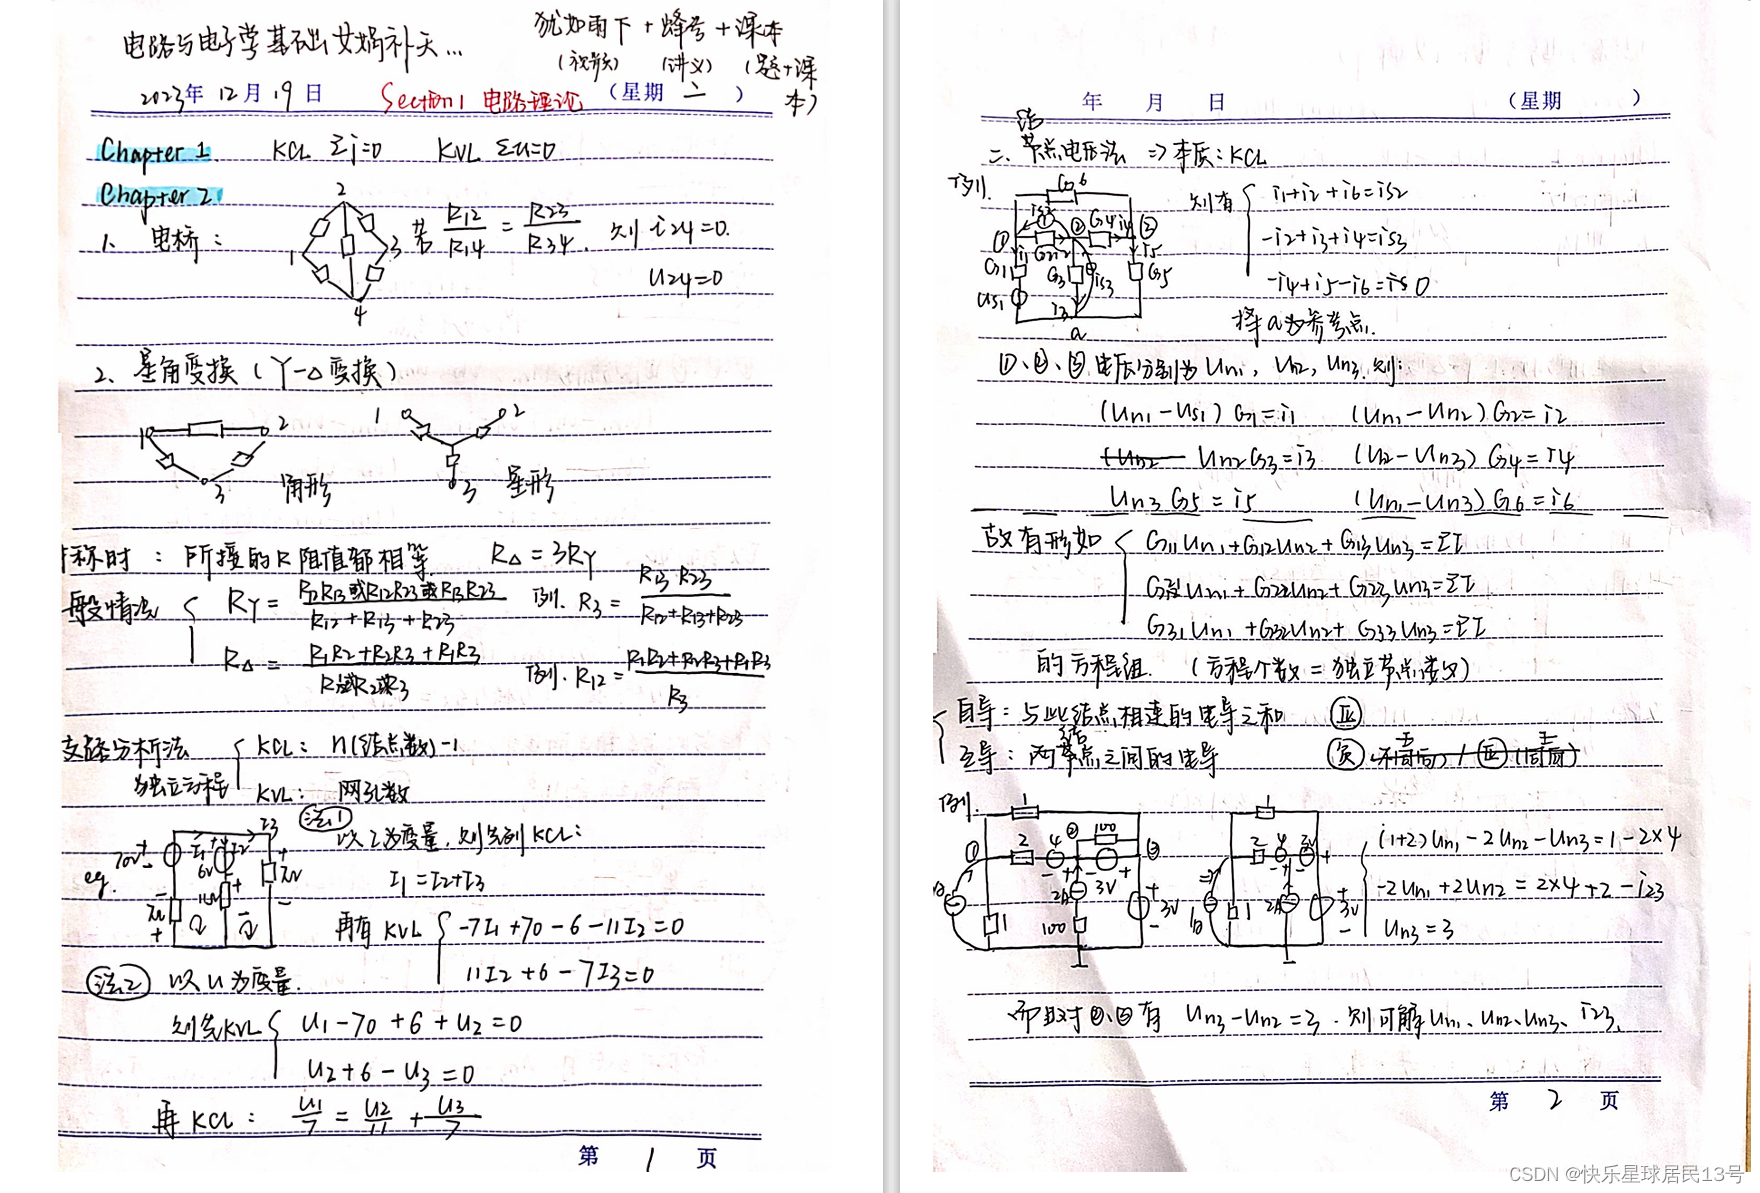 电路与电子学基础女娲补天...
犹如雨下+蜂考+课本
(视频) (讲义) (题+课本)
2023年 12月 19日 Section1 电路理论 (星期 二 )
Chapter 1 KCL Σi=0 KVL Σu=0
Chapter 2
1、电桥: 1 2 3 4 若 R12/R14 = R23/R34, 则 i24=0.
u24=0
2、星角变换(Y-Δ变换)
1 2 3 角形
1 2 3 星形
称时: 所接的R阻值都相等, RΔ=3RY
般情况 { RY = R12R13或R12R23或R13R23/R12+R13+R23 例. R3 = R13 R23/R12+R13+R23
RΔ = R1R2+R2R3+R1R3/R1或R2或R3 例. R12 = R1R2+R2R3+R1R3/R3
支路分析法 { KCL: n(结点数)-1
独立方程 KVL: 网孔数
eg. 70V 6V I1 I2 I3 7Ω 11Ω 7Ω
法1 以I为变量, 则先列KCL:
I1=I2+I3
再有 KVL { -7I1+70-6-11I2=0
11I2+6-7I3=0
法2 以u为变量.
则先KVL { u1-70+6+u2=0
u2+6-u3=0
再KCL: u1/7 = u2/11 + u3/7
第 1 页
年 月 日 (星期 )
二、结点电压法 => 本质: KCL
例. G6 is2 ① ② ③ G4 i4 i1 G2 i2 i5 G1 G3 is3 G5 us1 i3 a
则有 { i1+i2+i6=is2
-i2+i3+i4=is3
-i4+i5-i6=is 0
择a为参考点.
①、②、③电压分别为un1, un2, un3. 则:
(un1-us1)G1=i1 (un1-un2)G2=i2
un2G3=i3 (u2-un3)G4=i4
un3G5=i5 (un1-un3)G6=i6
故有形如 { G11un1+G12un2+G13un3=ΣI
G21un1+G22un2+G23un3=ΣI
G31un1+G32un2+G33un3=ΣI
的方程组. (方程个数=独立节点数)
自导: 与此结点相连的电导之和 正
互导: 两结点之间的电导 负
例. 1 ① 2 4 ② 100 ③ 3V 2A 1 100 3V
1 2 4 3V 1 2A 3V
{ (1+2)un1-2un2-un3=1-2×4
-2un1+2un2=2×4+2-i23
un3=3
而且对②、③有 un3-un2=3. 则可解un1、un2、un3、i23.
第 2 页
CSDN @快乐星球居民13号